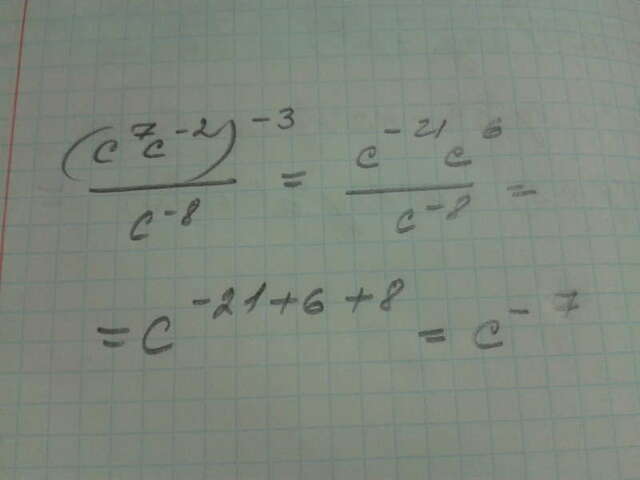 (c⁷c⁻²)⁻³ / c⁻⁸ = c⁻²¹c⁶ / c⁻⁸ =
= c⁻²¹⁺⁶⁺⁸ = c⁻⁷